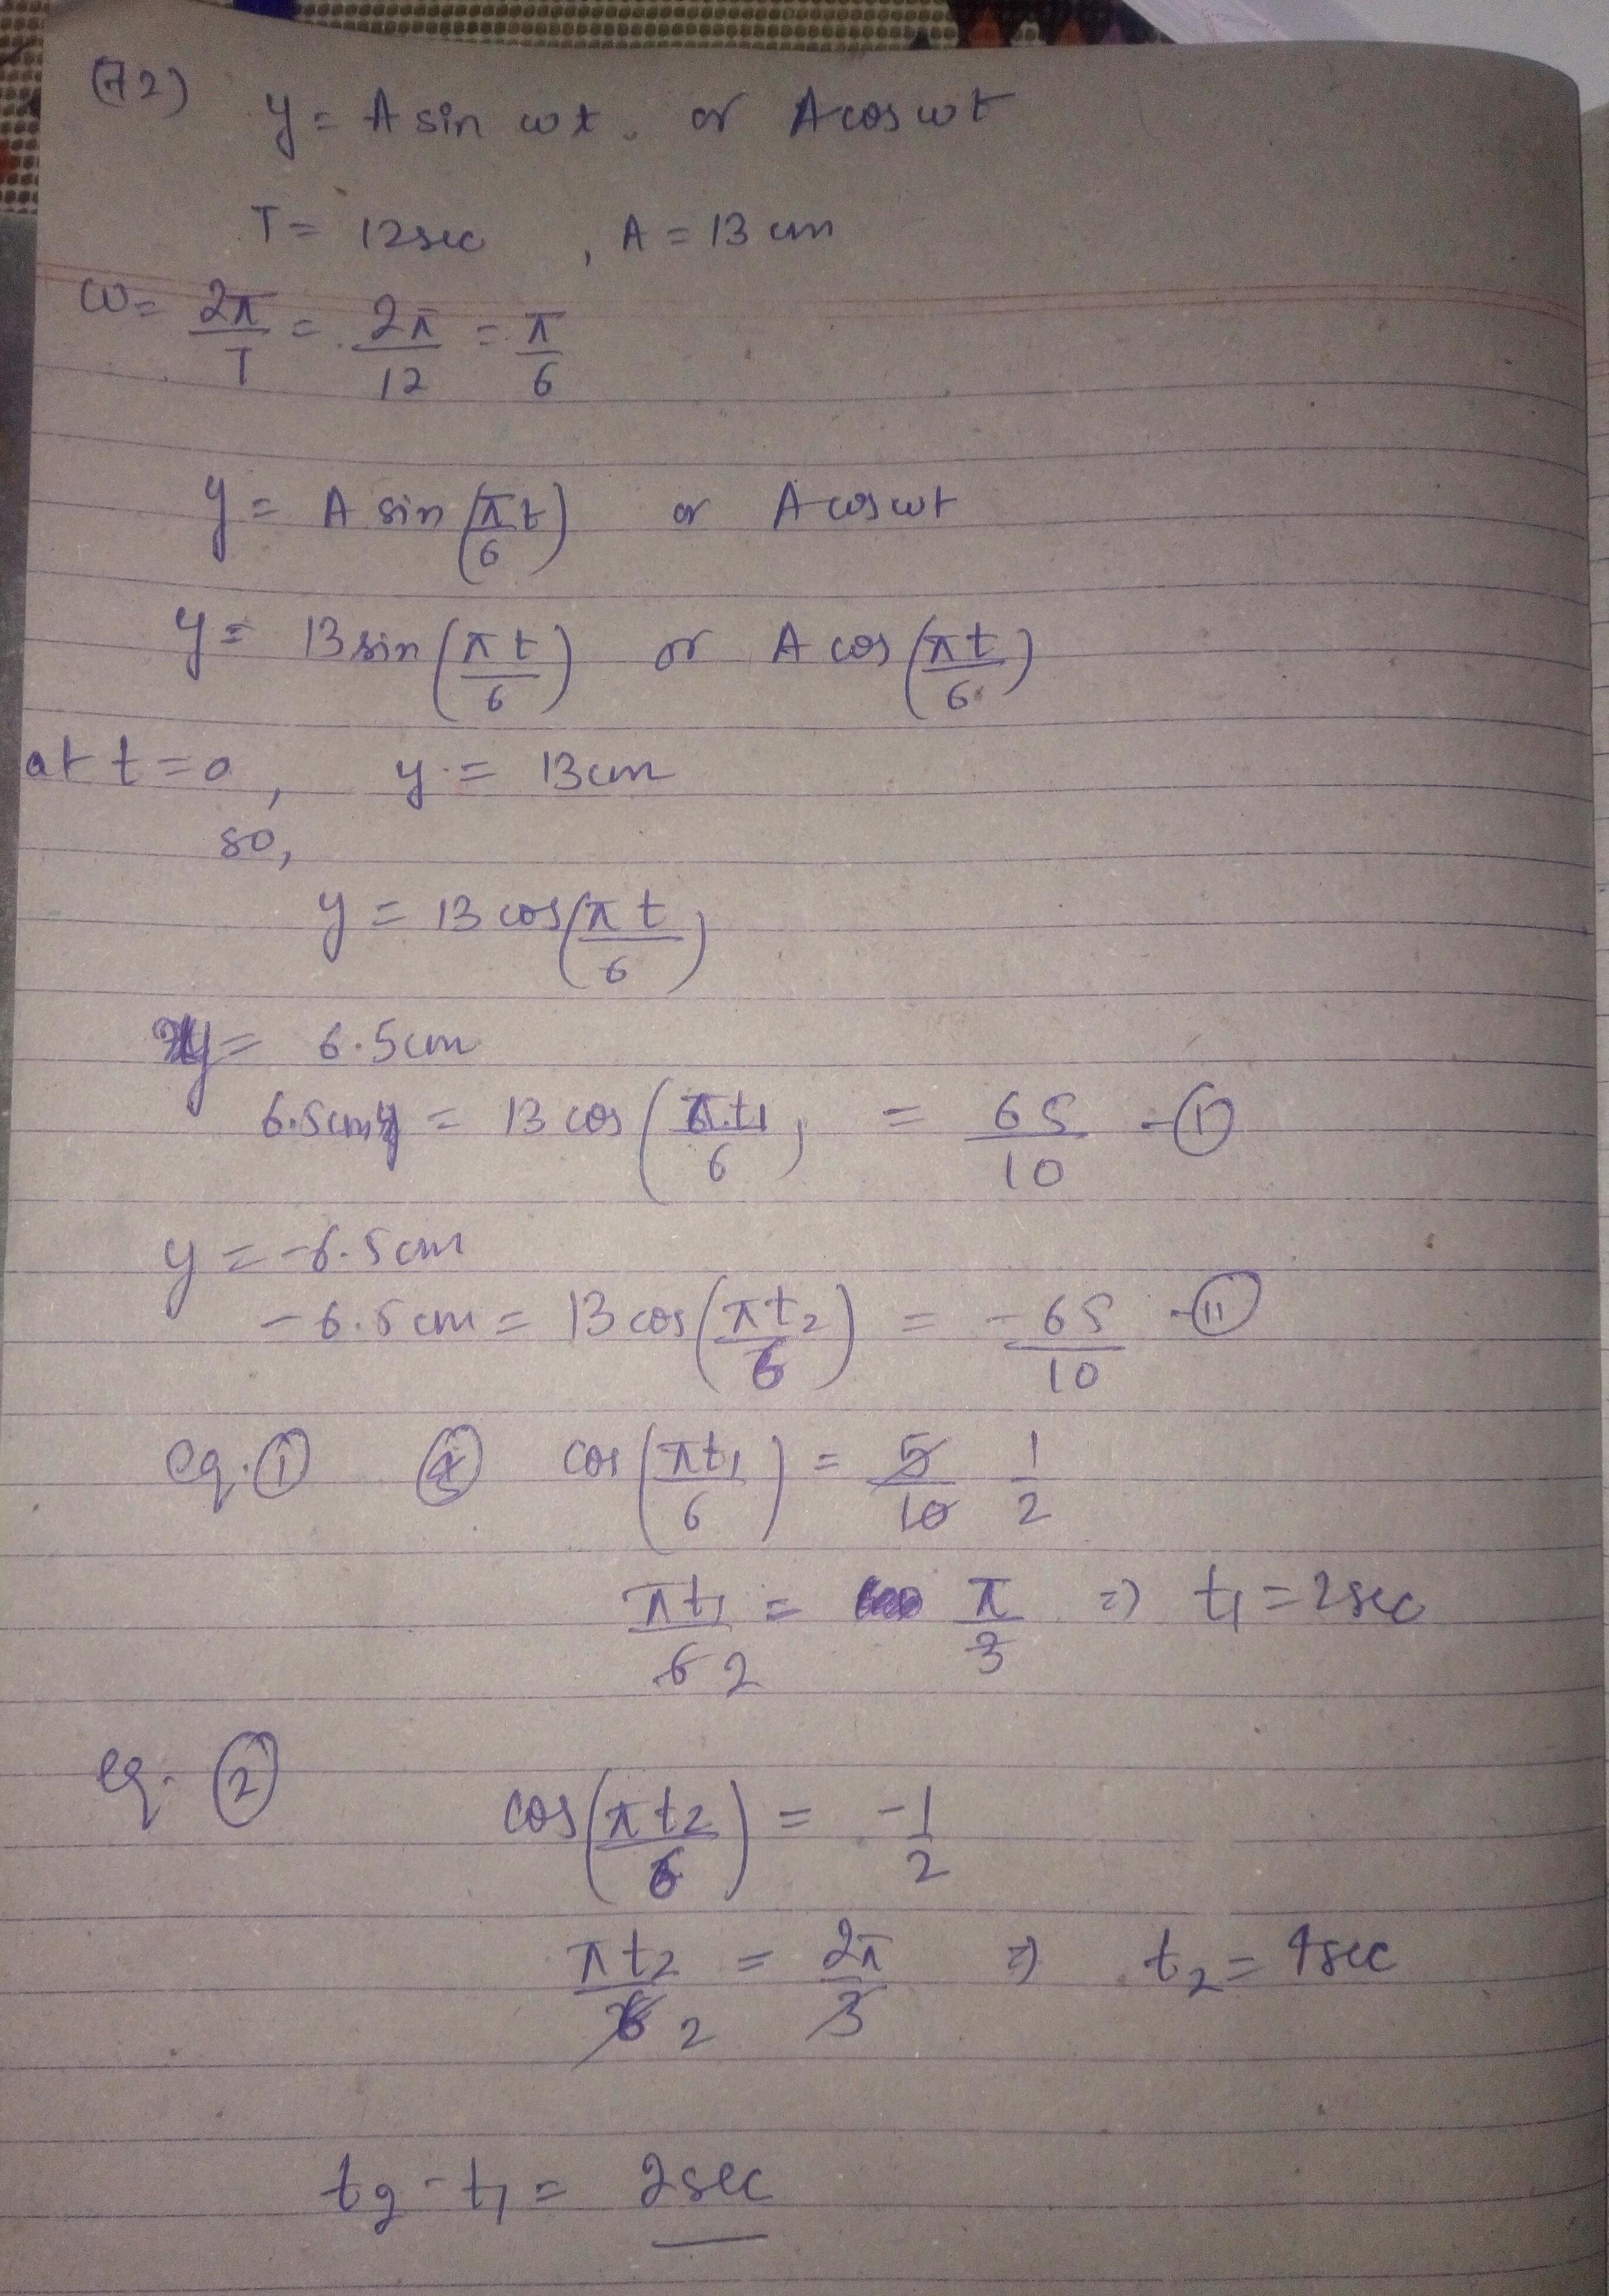 (72) y = A sin ωt. or A cos ωt
T = 12 sec , A = 13 cm
ω = 2π/T = 2π/12 = π/6
y = A sin (π t/6) or A cos ωt
y = 13 sin (π t/6) or A cos (π t/6)
at t = 0, y = 13 cm
so,
y = 13 cos (π t/6)
y = 6.5 cm
6.5 cm = 13 cos (π t₁/6) = 65/10 - ①
y = -6.5 cm
-6.5 cm = 13 cos (π t₂/6) = -65/10 - ⑪
eq. ① cos (π t₁/6) = 5/10 1/2
π t₁/6 2 = π/3 ⇒ t₁ = 2 sec
eq. ② cos (π t₂/6) = -1/2
π t₂/6 2 = 2π/3 ⇒ t₂ = 4 sec
t₂ - t₁ = 2 sec